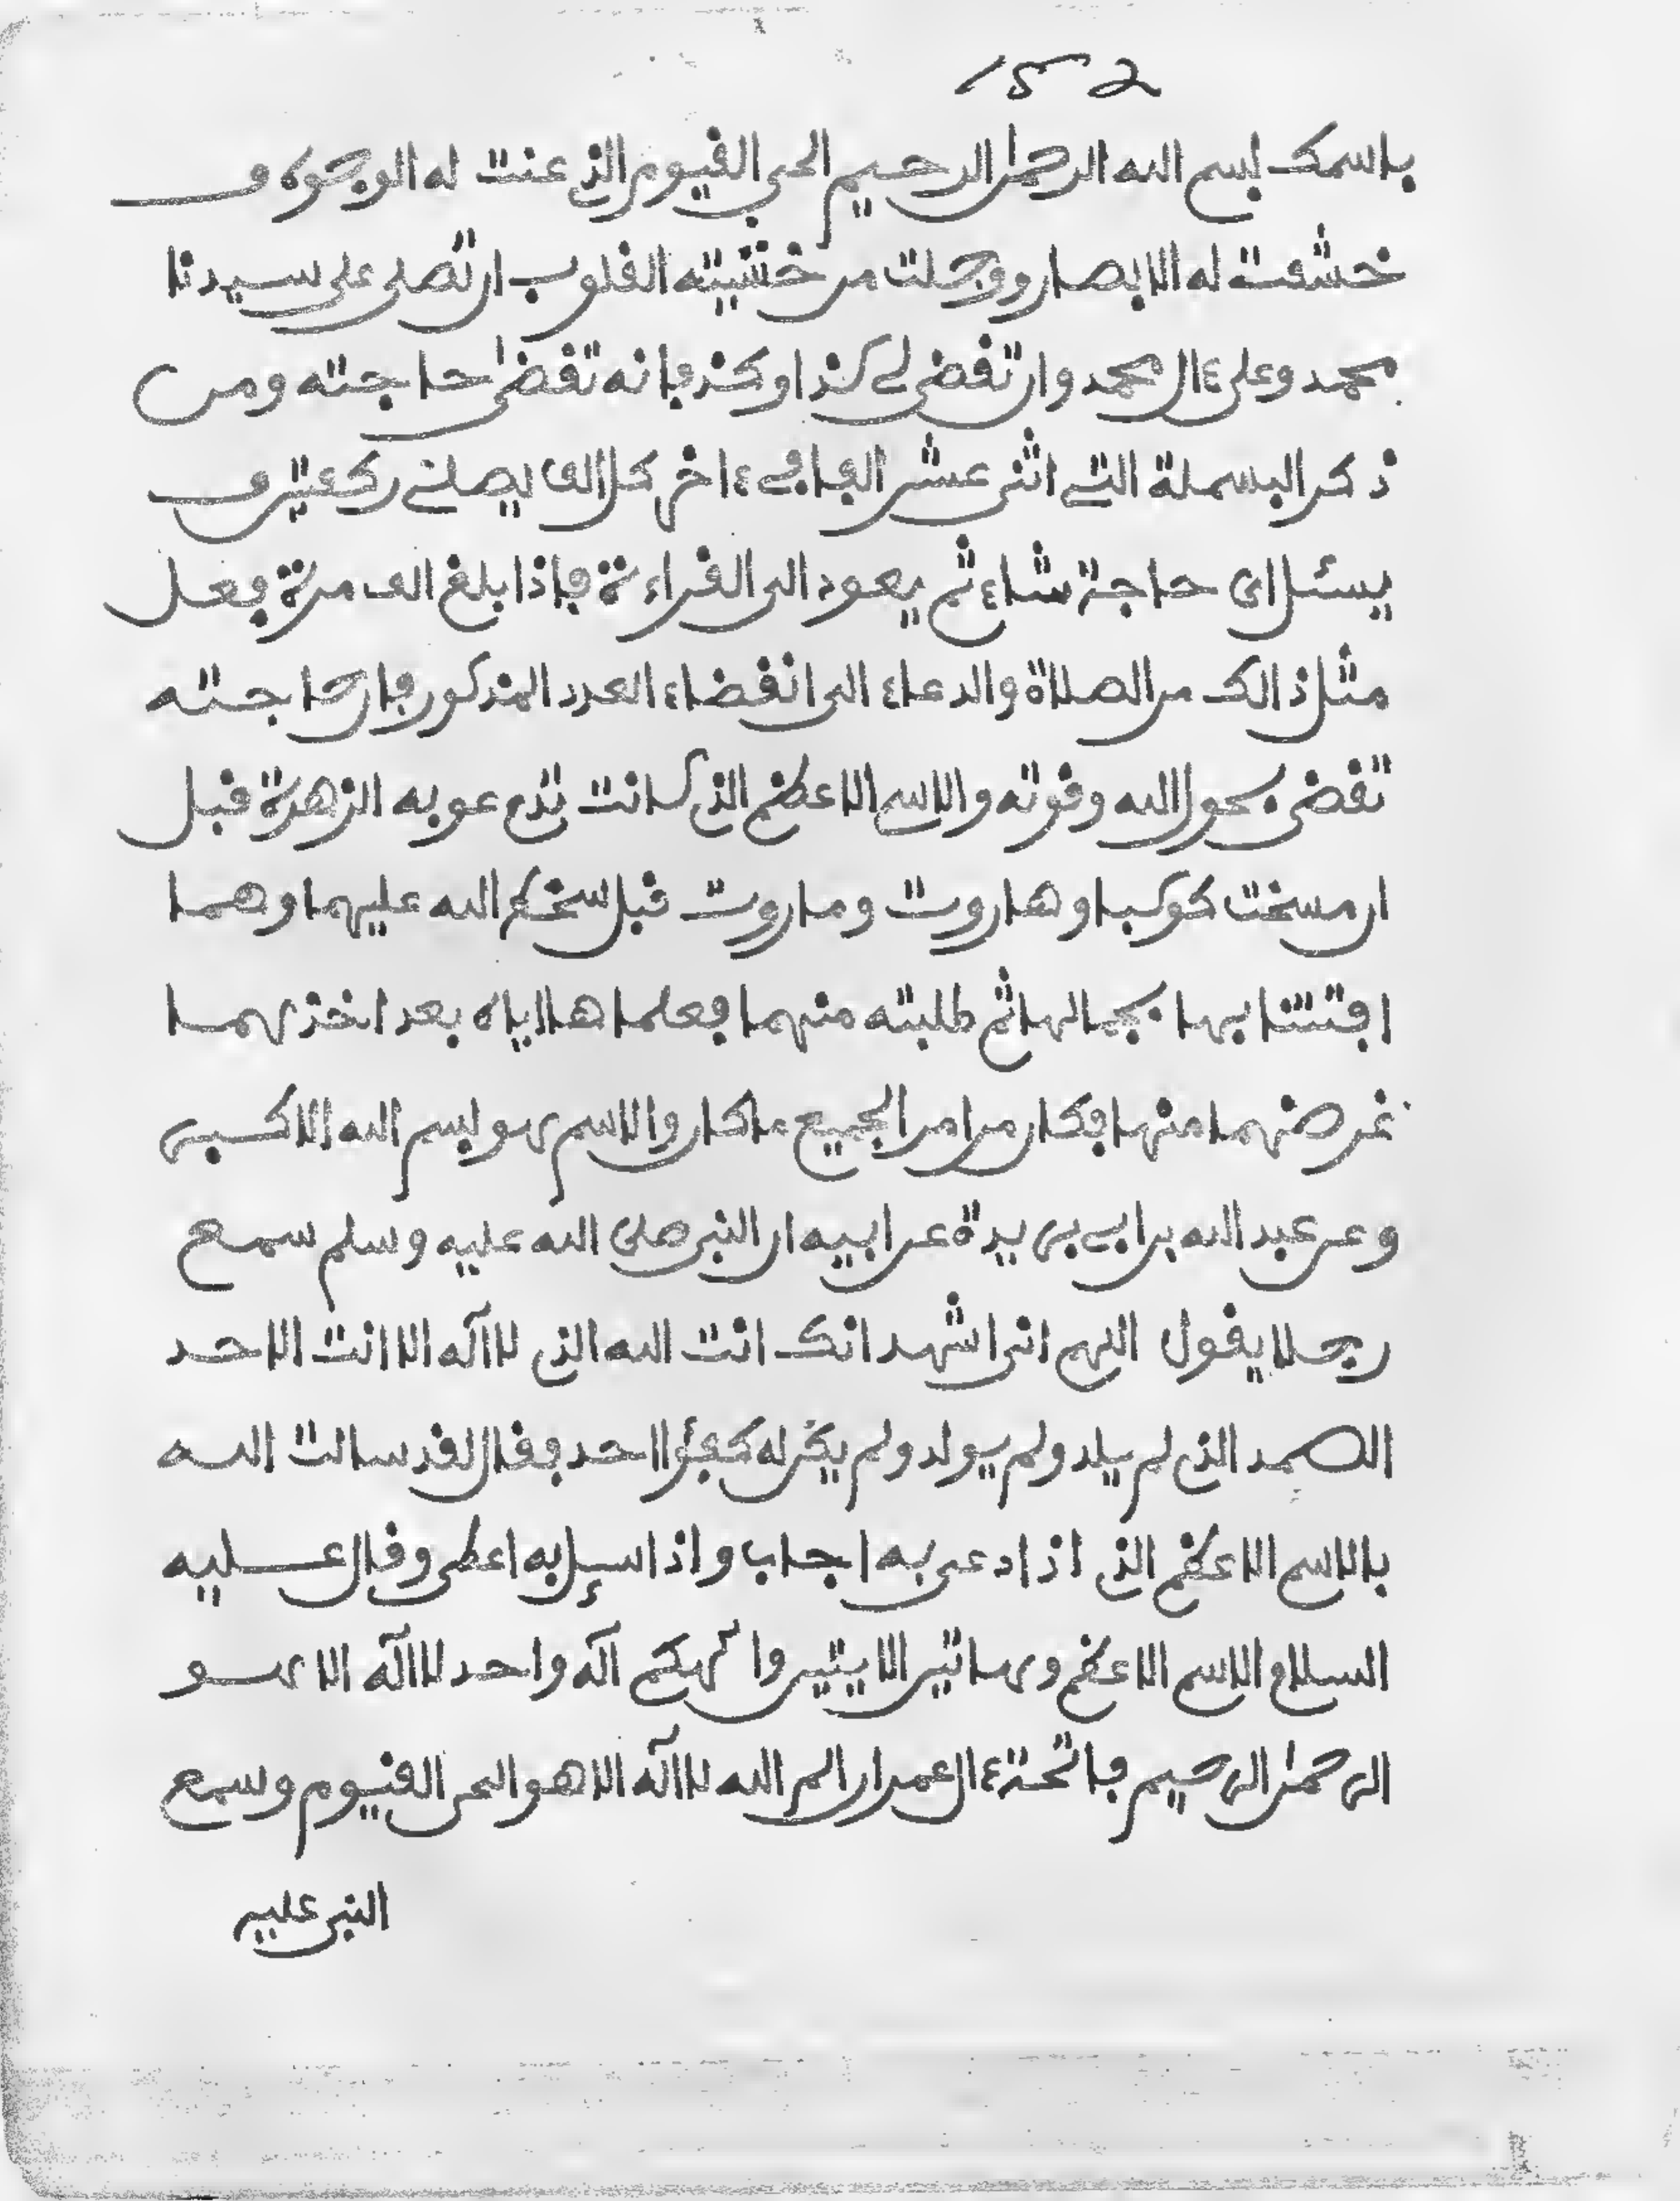 152
باسمك بسم الله الرحمن الرحيم الحي القيوم الذي عنت له الوجوه و
خشعت له الابصار ووجلت من خشيته القلوب ان تصلى على سيدنا
محمد وعلى ءال محمد وان تقضى لي كذا وكذا فانه تقضى حاجته ومن
ذكر البسملة التي اثنى عشر الفا في ءاخر كل الف يصلي ركعتين و
يسئل اى حاجة شاء ثم يعود الى القراءة فاذا بلغ الف مرة فعل
مثل ذالك من الصلاة والدعاء الى انقضاء العدد المذكور فان حاجته
تقضى بحول الله وقوته والاسم الاعظم الذى كانت تدعو به الزهرة قبل
ان مسخت كوكبا وهاروت وماروت قبل سخط الله عليهما وهما
افتتنا بها بجمالها ثم طلبته منهما فعلماها اياه بعد اخذهما
غرضهما منها فكان من امر الجميع ما كان والاسم هو بسم الله الاكبر
وعن عبد الله بن ابي بريدة عن ابيه ان النبي صلى الله عليه وسلم سمع
رجلا يقول اللهم انى اشهد انك انت الله الذى لا اله الا انت الاحد
الصمد الذى لم يلد ولم يولد ولم يكن له كفؤا احد فقال لقد سالت الله
بالاسم الاعظم الذى اذا دعى به اجاب واذا سيل به اعطى وقال عليه
السلام الاسم الاعظم وهاتين الايتين والهكم اله واحد لا اله الا هو
الرحمن الرحيم فاتحة ءال عمران الم الله لا اله الا هو الحى القيوم وسمع
النبي عليه